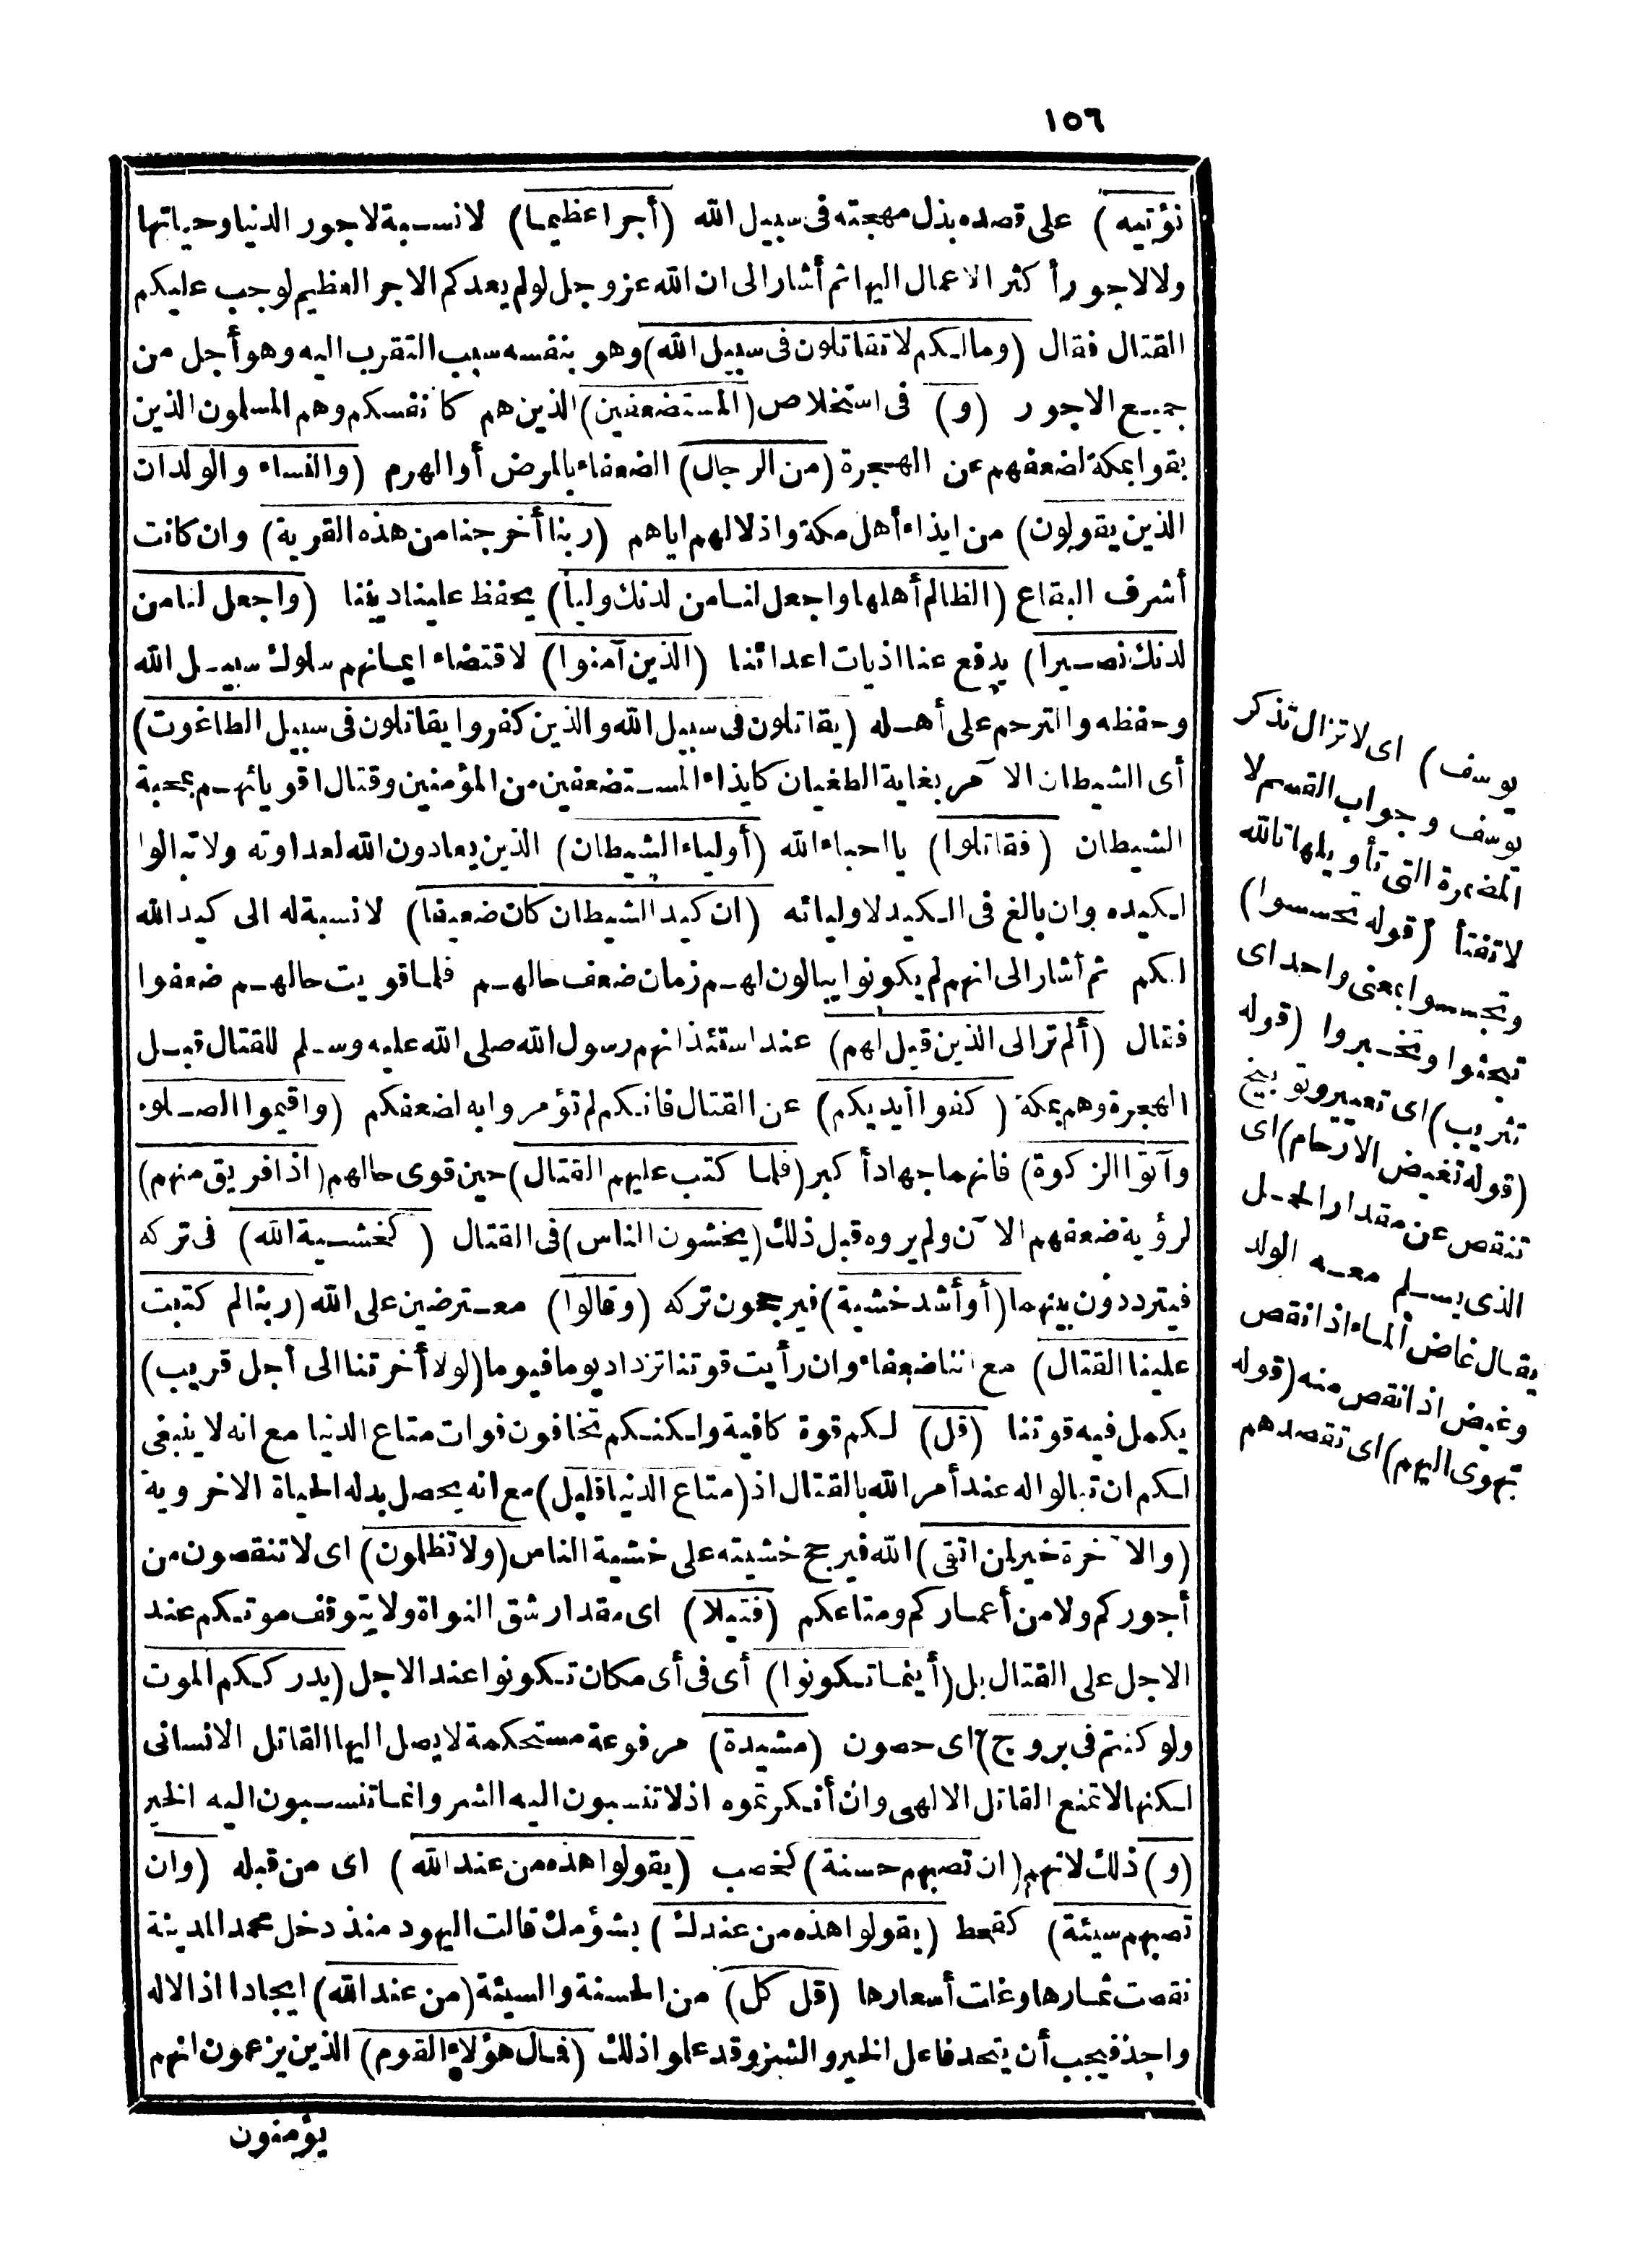 ١٥٦
نؤتيه) على قصده بذل مهجته فى سبيل الله (أجرا عظيما) لا نسبة لاجور الدنيا وحياتها
ولا لاجور أكثر الاعمال اليها ثم أشار الى ان الله عز وجل لو لم يعدكم الاجر العظيم لوجب عليكم
القتال فقال (وما لكم لا تقاتلون فى سبيل الله) وهو بنفسه سبب التقرب اليه وهو أجل من
جميع الاجور (و) فى استخلاص (المستضعفين) الذين هم كانفسكم وهم المسلمون الذين
بقوا بمكة لضعفهم عن الهجرة (من الرجال) الضعفاء بالمرض أو الهرم (والنساء والولدان
الذين يقولون) من ايذاء أهل مكة واذلالهم اياهم (ربنا أخرجنا من هذه القرية) وان كانت
أشرف البقاع (الظالم أهلها واجعل لنا من لدنك وليا) يحفظ علينا ديننا (واجعل لنا من
لدنك نصيرا) يدفع عنا اذيات اعدائنا (الذين آمنوا) لاقتضاء ايمانهم سلوك سبيل الله
وحفظه والترحم على أهله (يقاتلون فى سبيل الله والذين كفروا يقاتلون فى سبيل الطاغوت)
أى الشيطان الآمر بغاية الطغيان كايذاء المستضعفين من المؤمنين وقتال اقويائهم بمحبة
الشيطان (فقاتلوا) يا احباء الله (أولياء الشيطان) الذين يعادون الله لعداوته ولا تبالوا
لكيده وان بالغ فى الكيد لاوليائه (ان كيد الشيطان كان ضعيفا) لا نسبة له الى كيد الله
لكم ثم أشار الى انهم لم يكونوا يبالون لهم زمان ضعف حالهم فلما قويت حالهم ضعفوا
فقال (ألم تر الى الذين قيل لهم) عند استئذانهم رسول الله صلى الله عليه وسلم للقتال قبل
الهجرة وهم بمكة (كفوا أيديكم) عن القتال فانكم لم تؤمروا به لضعفكم (واقيموا الصلوة
وآتوا الزكوة) فانهما جهاد أكبر (فلما كتب عليهم القتال) حين قوى حالهم (اذا فريق منهم)
لرؤية ضعفهم الآن ولم يروه قبل ذلك (يخشون الناس) فى القتال (كخشية الله) فى تركه
فيترددون بينهما (أو أشد خشية) فيرجحون تركه (وقالوا) معترضين على الله (ربنا لم كتبت
علينا القتال) مع اننا ضعفاء وان رأيت قوتنا تزداد يوما فيوما (لولا أخرتنا الى أجل قريب)
يكمل فيه قوتنا (قل) لكم قوة كافية ولكنكم تخافون فوات متاع الدنيا مع انه لا ينبغى
لكم ان تبالوا له عند أمر الله بالقتال اذ (متاع الدنيا قليل) مع انه يحصل بدله الحياة الاخروية
(والآخرة خير لمن اتقى) الله فيرجح خشيته على خشية الناس (ولا تظلمون) اى لا تنقصون من
أجوركم ولا من أعماركم ومتاعكم (فتيلا) اى مقدار شق النواة ولا يتوقف موتكم عند
الاجل على القتال بل (أينما تكونوا) أى فى أى مكان تكونوا عند الاجل (يدرككم الموت
ولو كنتم فى بروج) اى حصون (مشيدة) مرفوعة مستحكمة لا يصل اليها القاتل الانسانى
لكنها لا تمنع القاتل الالهى وان أنكرتموه اذ لا تنسبون اليه الشر وانما تنسبون اليه الخير
(و) ذلك لانهم (ان تصبهم حسنة) كخصب (يقولوا هذه من عند الله) اى من قبله (وان
تصبهم سيئة) كقحط (يقولوا هذه من عندك) بشؤمك قالت اليهود منذ دخل محمد المدينة
نقصت ثمارها وغلت أسعارها (قل كل) من الحسنة والسيئة (من عند الله) ايجادا اذ الاله
واحد فيجب أن يتحد فاعل الخير والشر وقد علموا ذلك (فمال هؤلاء القوم) الذين يزعمون انهم
يؤمنون
يوسف) اى لا تزال تذكر
يوسف وجواب القسم لا
المضمرة التى تأويلها تالله
لا تفتأ (قوله تحسسوا)
وتجسسوا بمعنى واحد اى
تبحثوا وتخبروا (قوله
تثريب) اى تعيير وتوبيخ
(قوله تغيض الارحام) اى
تنقص عن مقدار الحمل
الذى يسلم معه الولد
يقال غاض الماء اذا نقص
وغيض اذا نقص منه (قوله
تهوى اليهم) اى تقصدهم